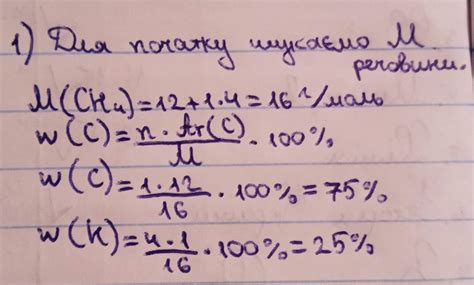 1) Для початку шукаємо М
речовини.
M(CH₄)=12+1·4=16 г/моль
w(C)=n·Ar(C)/M·100%
w(C)=1·12/16·100%=75%
w(K)=4·1/16·100%=25%